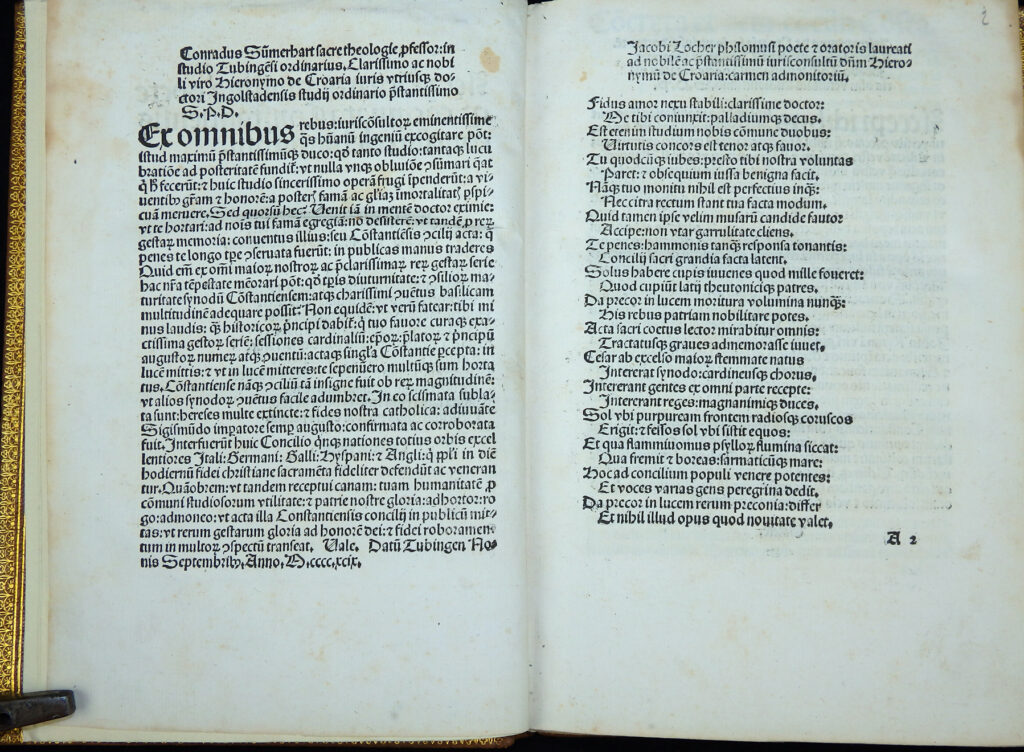 Conradus Sūmerhart sacre theologie ꝓfessor: in
studio Tubingēsi ordinarius. Clarissimo ac nobi
li viro Hieronymo de Croaria iuris vtriusqꝫ do⸗
ctori Ingolstadensis studij ordinario p̄stantissimo
S. P. D.
Ex omnibus rebus: iurisc̄osultoꝝ eminentissime
q̄s hūanū ingeniū excogitare pōt:
istud maximū p̄stantissimūqꝫ duco: qd̄ tanto studio: tantaqꝫ lucu
bratiōe ad posteritatē fundit̄: vt nulla vnqꝫ obliuiōe
q̄ h̄ fecerūt: ⁊ huic studio sincerissimo operā frugi īpenderūt: a vi⸗
uentibꝰ gr̄am ⁊ honorē: a posterꝭ famā ac gl̄iaꝫ īmortalitatꝭ ꝑspi⸗
cuā meruere. Sed quorsū hec? Uenit iā in mentē doctor eximie:
vt te hortari: ad nois tui famā egregiā: nō desisterē: vt tandē ꝓ reꝝ
gestaꝝ memoria: conuentus illius: seu Cōstātiēsis ꝯcilij acta: q̄
penes te longo tp̄re ꝯseruata fuerūt: in publicas manus traderes
Quid em̄ ex om̄i maioꝝ nostroꝝ ac p̄clarissimaꝝ reꝝ gestaꝝ serie
hac nr̄a tēpestate mēorari pōt: qd̄ tp̄ris diuturnitate: ⁊ ꝯsilioꝝ ma⸗
turitate synodū Cōstātiensem: atqꝫ charissimi ꝯuētus basilicam
multitudinē adequare possit? Non equidē: vt verū fatear: tibi mi
nus laudis: qꝫ historicoꝝ pͥncipi dabit̄: q̄ tuo fauore curaqꝫ exa⸗
ctissima gestoꝝ seriē: sessiones cardinaliū: ep̄oꝝ: p̄latoꝝ ⁊ pͥncipū
augustoꝝ numeꝝ atqꝫ ꝯuentū: actaqꝫ singl̄a Cōstātie ꝑcepta: in
lucē mittis: ⁊ vt in lucē mitteres: te sepenūero multūqꝫ sum horta
tus. Cōstantiense nāqꝫ ꝯciliū tā insigne fuit ob reꝝ magnitudinē:
vt alios synodoꝝ ꝯuētus facile adumbret. In eo scismata subla⸗
ta sunt: hereses multe extincte: ⁊ fides nostra catholica: adiuuāte
Sigismūdo imꝑatore semꝑ augusto: confirmata ac corroborata
fuit. Interfuerūt huic Concilio qͥnqꝫ nationes totius orbis excel
lentiores Itali: Germani: Galli: Hyspani: ⁊ Angli: q̄ ppl̄i in diē
hodiernū fidei christiane sacramēta fideliter defendūt ac veneran
tur. Quāobrem: vt tandem receptui canam: tuam humanitatē ꝓ
cōmuni studiosorum vtilitate: ⁊ patrie nostre gloria: adhortor: ro
go: admoneo: vt acta illa Constantiensis concilij in publicū mit⸗
tas: vt rerum gestarum gloria ad honorē dei: ⁊ fidei roboramen
tum in multoꝝ ꝯspectū transeat. Uale. Datū Tubingen No⸗
nis Septembribꝰ. Anno. M. cccc. xcix.
2
Jacobi Locher philomusi poete ⁊ oratoris laureati
ad nobilē ac p̄stantissimū iurisconsultū dn̄m Hiero⸗
nymū de Croaria: carmen admonitoriū.
Fidus amor nexu stabili: clarissime doctor:
Me tibi coniunxit: palladiumqꝫ decus.
Est etenim studium nobis cōmune duobus:
Uirtutis concors est tenor atqꝫ fauor.
Tu quodcūqꝫ iubes: presto tibi nostra voluntas
Paret: ⁊ obsequium iussa benigna facit.
Nāqꝫ tuo monitu nihil est perfectius inqꝫ:
Nec citra rectum stant tua facta modum.
Quid tamen ipse velim musarū candide fautor
Accipe: non vtar garrulitate cliens.
Te penes: hammonis tanqꝫ responsa tonantis:
Concilij sacri grandia facta latent.
Solus habere cupis iuuenes quod mille foueret:
Quod cupiūt latij theutoniciqꝫ patres.
Da precor in lucem moritura volumina nunqꝫ:
His rebus patriam nobilitare potes.
Acta sacri coetus lector mirabitur omnis:
Tractatusqꝫ graues admemorasse iuuet.
Cesar ab excelso maioꝝ stemmate natus
Intererat synodo: cardineusqꝫ chorus.
Intererant gentes ex omni parte recepte:
Intererant reges: magnanimiqꝫ duces.
Sol vbi purpuream frontem radiosqꝫ coruscos
Erigit: ⁊ fessos sol vbi sistit equos:
Et qua flammiuomus psylloꝝ flumina siccat:
Qua fremit ⁊ boreas: sarmaticūqꝫ mare:
Hoc ad concilium populi venere potentes:
Et voces varias gens peregrina dedit.
Da precor in lucem rerum preconia: differ
Et nihil illud opus quod nouitate valet.
A 2